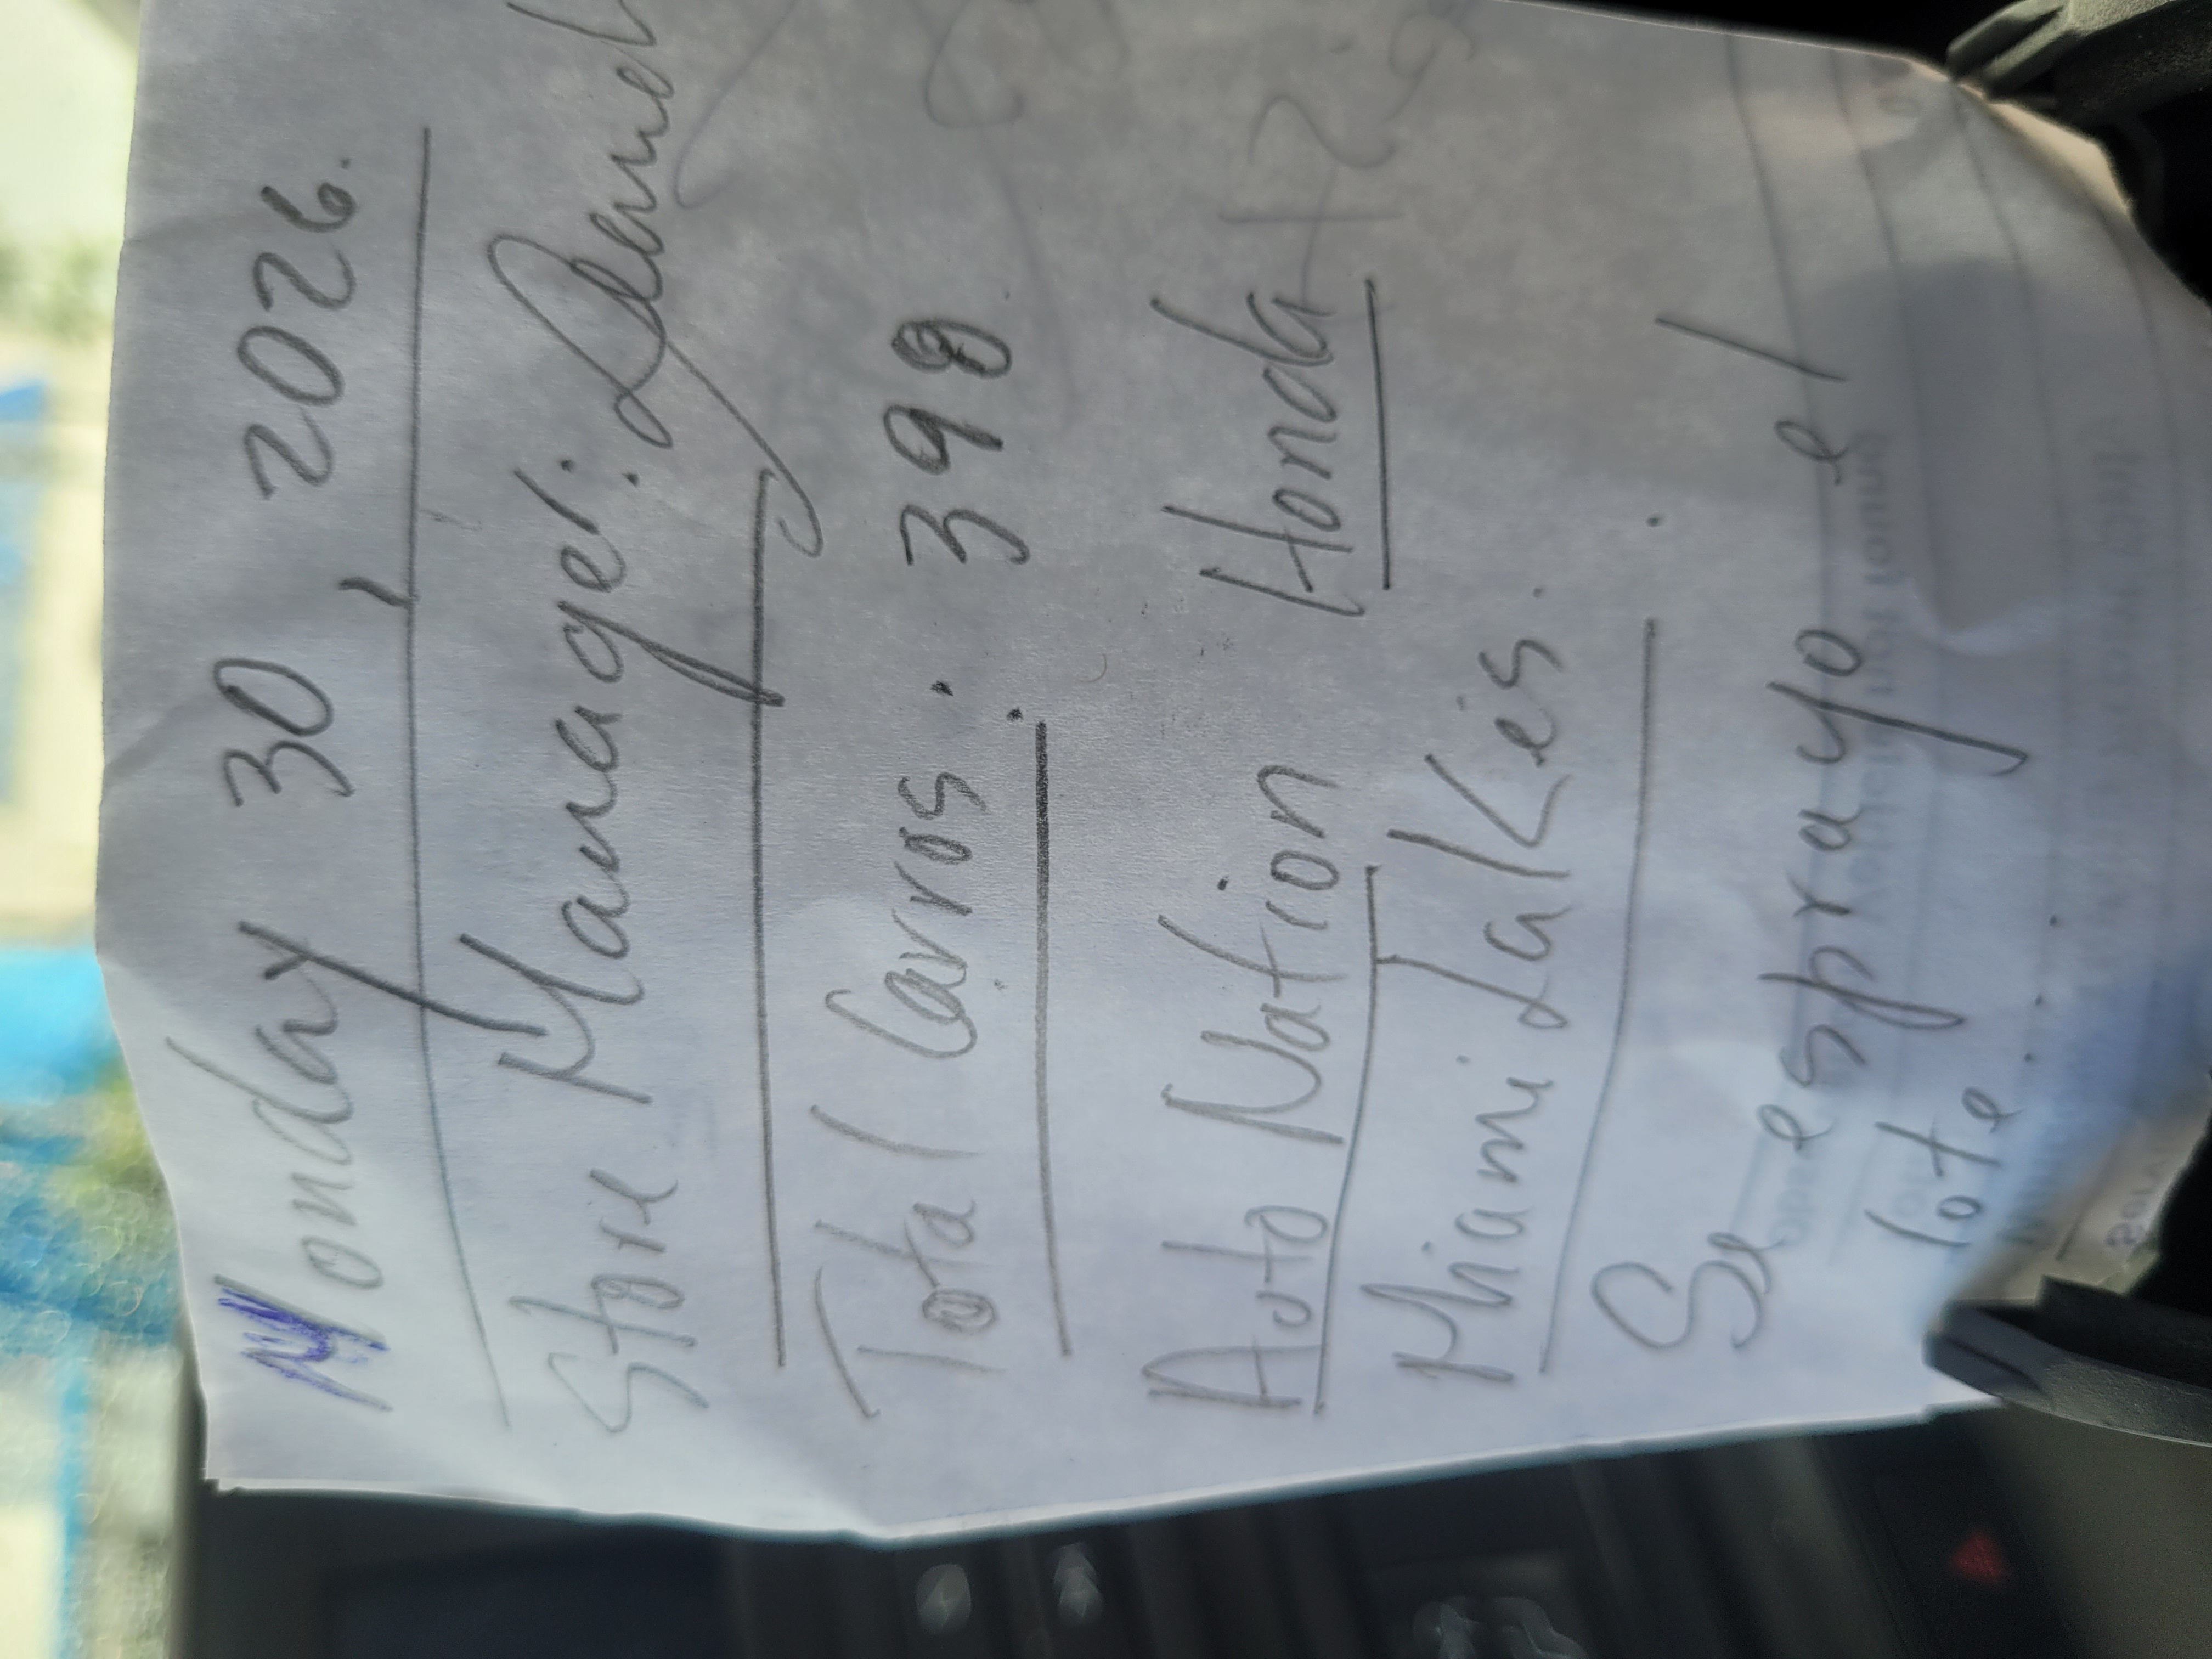 Monday 30, 2026.
Store Manager:
Total Carros: 398
Auto Nation Honda
Miami Lakes.
Se esprayo el
lote...